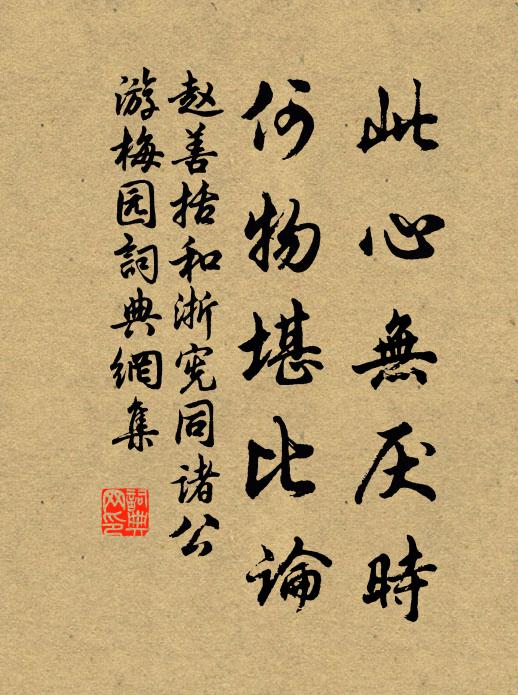 此心無厌時
何物堪比論
赵善括和浙宪同诸公
游梅园詞典網集
詞典网印